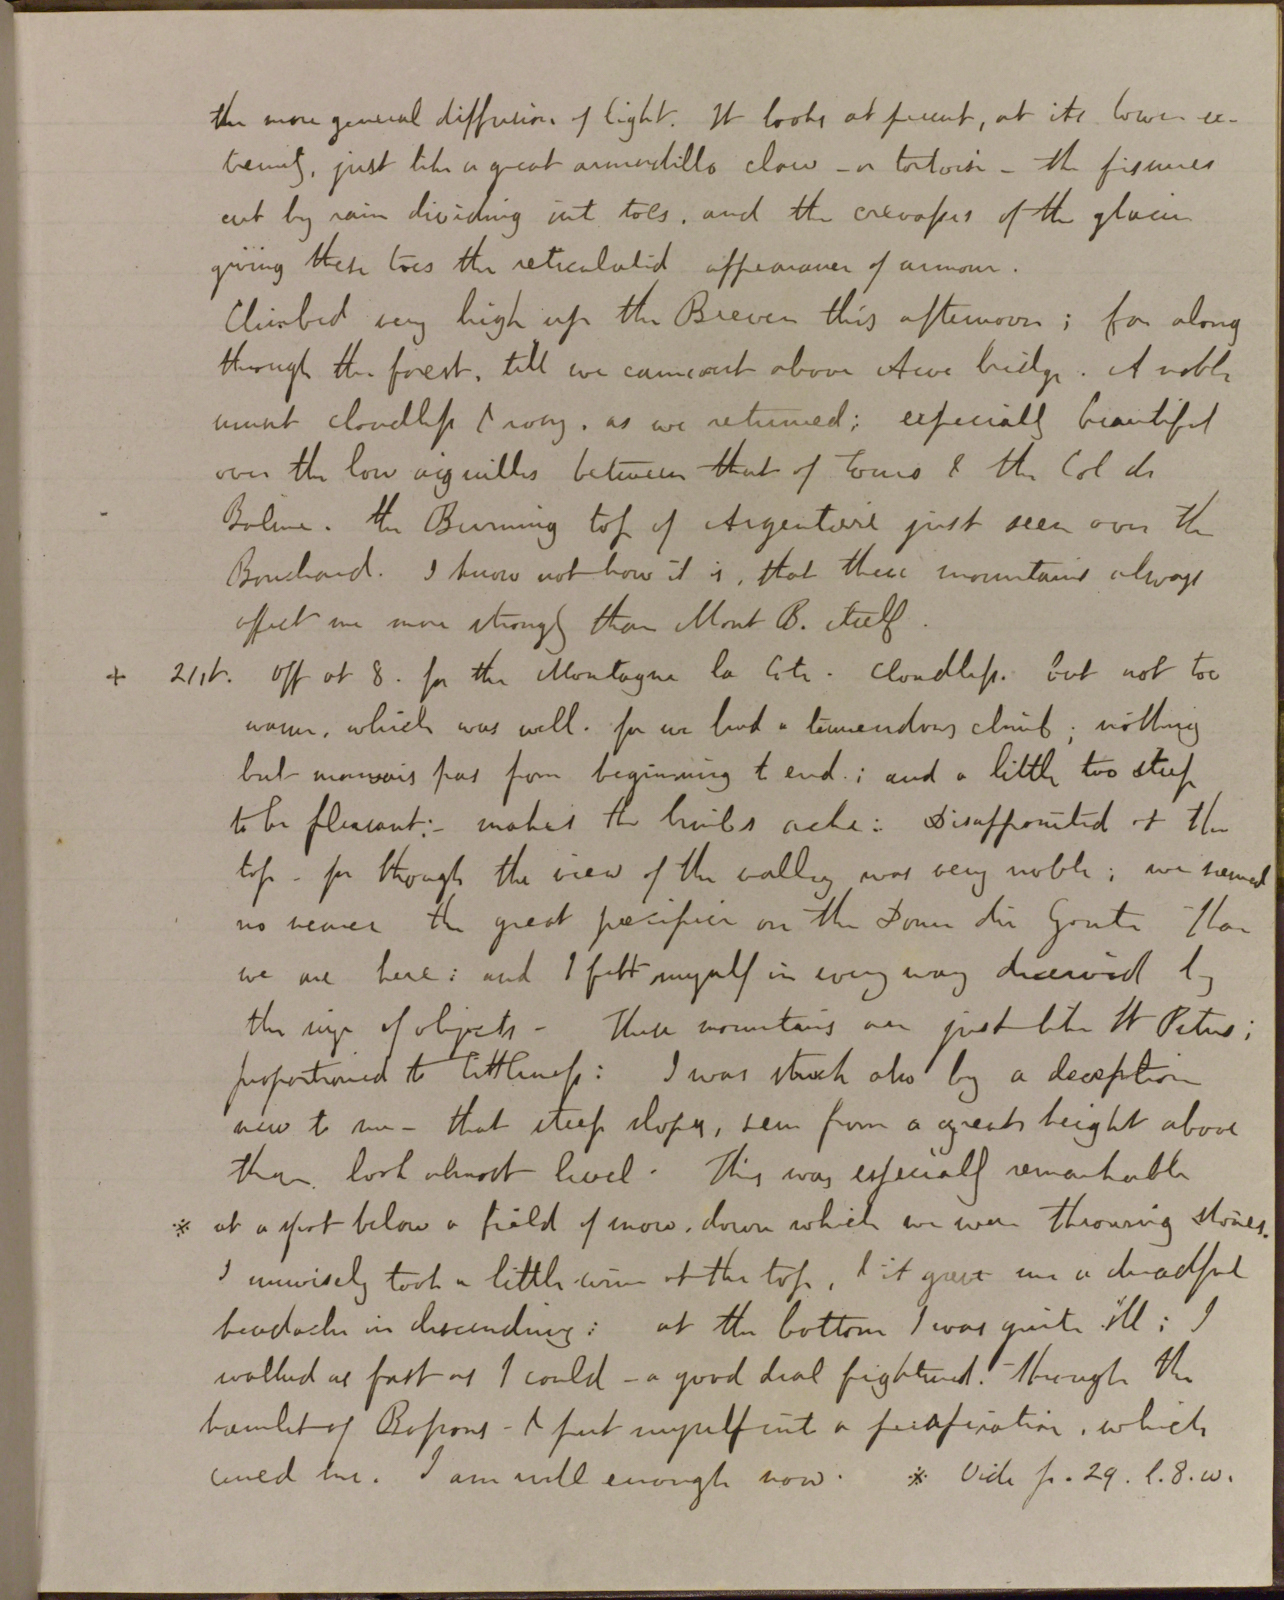 the more general diffusion of light. It looks at present, at its lower ex-
tremity, just like a great armadillo claw - or tortoise - the fissures
cut by rain dividing into toes, and the crevasses of the glacier
giving these toes the reticulated appearance of armour.
Climbed very high up the Breven this afternoon; far along
through the forest, till we came out above Arve bridge. A noble
sunset cloudless & rosy, as we returned; especially beautiful
over the low aiguilles between that of Tours & the Col de
Balme. the Burning top of Argentiere just seen over the
Bouchard. I know not how it is, that these mountains always
affect me more strongly than Mont B. itself.
+ 21st. Off at 8. for the Montagne la Cote. Cloudless. but not too
warm, which was well. for we had a tremendous climb; nothing
but mauvais pas from beginning to end.; and a little too steep
to be pleasant:- makes the limbs ache: Disappointed at the
top - for though the view of the valley was very noble; we seemed
no nearer the great precipice on the Dome du Goute than
we are here: and I felt myself in every way deceived by
the size of objects - These mountains are just like St Peters;
proportioned to littleness: I was struck also by a deception
new to me - that steep slopes, seen from a great height above
them, look almost level. This was especially remarkable
※ at a spot below a field of snow, down which we were throwing stones.
I unwisely took a little wine at the top, & it gave me a dreadful
headache in descending: at the bottom I was quite ill; I
walked as fast as I could - a good deal frightened. through the
hamlet of Bossons - & put myself into a perspiration, which
cured me. I am well enough now. ※ Vide p. 29. l. 8. w.